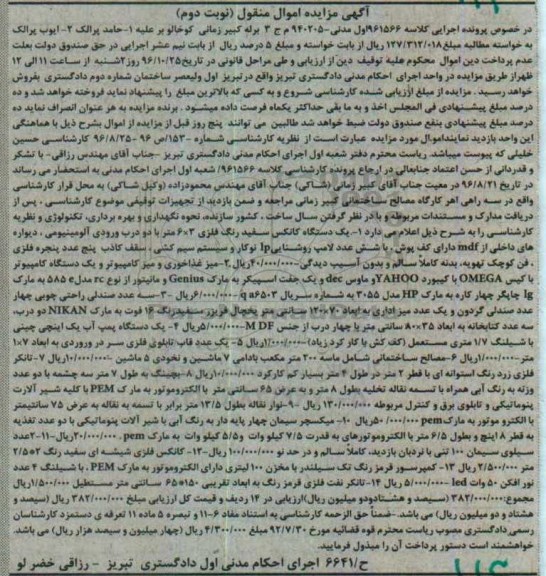 آگهی مزایده اموال منقول (نوبت دوم)
در خصوص پرونده اجرایی کلاسه ۹۶۱۵۶۶اول مدنی-۹۴۰۲۰۵-م ج ۳ برله کبیر زمانی کوخالو بر علیه ۱-حامد پرالک ۲- ایوب پرالک
به خواسته مطالبه مبلغ ۱۲۷/۳۱۲/۰۱۸ ریال از بابت خواسته و مبلغ ۵ درصد ریال از بابت نیم عشر اجرایی در حق صندوق دولت بعلت
عدم پرداخت دین اموال محکوم علیه توقیف دین از ارزیابی و طی مراحل قانونی در تاریخ ۹۶/۱۰/۲۵ روز ۲شنبه از ساعت ۱۱ الی ۱۲
ظهر از طریق مزایده در واحد اجرای احکام مدنی دادگستری تبریز واقع در تبریز اول ولیعصر ساختمان شماره دوم دادگستری بفروش
خواهد رسید. مزایده از مبلغ ارزیابی شده کارشناسی شروع و به کسی که بالاترین مبلغ را پیشنهاد نماید فروخته خواهد شد و ده
درصد مبلغ پیشنهادی فی المجلس اخذ و به ما بقی حداکثر یکماه فرصت داده میشود. برنده مزایده به هر عنوان انصراف نماید ده
درصد مبلغ پیشنهادی بنفع صندوق دولت ضبط خواهد شد طالبین می توانند پنج روز قبل از مزایده از اموال بشرح ذیل با هماهنگی
این واحد بازدید نماینداموال مورد مزایده عبارت است از نظریه کارشناسی شماره ۱۵۳-/ص ۹۶ -۹۶/۸/۲۵ کارشناسی حسین
خلیلی که پیوست میباشد. ریاست محترم دفتر شعبه اول اجرای احکام مدنی دادگستری تبریز -جناب آقای مهندس رزاقی- با تشکر
و قدردانی از حسن اعتماد جنابعالی در ارجاع پرونده کارشناسی کلاسه ۹۶۱۵۶۶/ شعبه اول اجرای احکام مدنی به استحضار می رساند
در تاریخ ۹۶/۸/۲۱ در معیت جناب آقای کبیر زمانی (شاکی) جناب آقای مهندس محمودزاده (وکیل شاکی) به محل قرار کارشناسی
واقع در سه راهی اهر کارگاه مصالح ساختمانی کبیر زمانی مراجعه و ضمن بازدید از تجهیزات توقیفی موضوع کارشناسی ، پس از
دریافت مدارک و مستندات مربوطه و با در نظر گرفتن سال ساخت ، کشور سازنده، نحوه نگهداری و بهره برداری، تکنولوژی و نظریه
کارشناسی را به شرح ذیل اعلام می دارد ۱-یک دستگاه کانکس سفید رنگ فلزی ۳×۶ متر با دو درب ورودی آلومینیومی ، دیواره
های داخلی از mdf دارای کف پوش ، با شش عدد لامپ روشنایی و سیستم سیم کشی ، سقف کاذب پنج عدد پنجره فلزی
، فن کوچک تهویه، بدنه کاملاً سالم و بدون آسیب دیدگی-۴۰/۰۰۰/۰۰۰ریال ۲-میز غذاخوری و میز کامپیوتر و یک دستگاه کامپیوتر
با کیس OMEGA با کیبورد YAHOO و ماوس dec و یک جفت اسپیکر به مارک Genius و مانیتور از نوع rc مدل ۵۸۵ به مارک
lg چاپگر چهار کاره به مارک HP مدل ۳۰۵۵ به شماره سریال ۶/۰۰۰/۰۰۰ ریال -۳-سه عدد صندلی راحتی چوبی چهار
عدد صندلی گردون و یک عدد میز اداری به ابعاد ۷۰×۱۲۰ سانتی متر یخچال فریزر سفیدرنگ ۱۶ فوت به مارک NIKAN دو درب،
سه عدد کتابخانه به ابعاد ۳۵×۸۰ سانتی متر با چهار درب از جنس M DF-۵/۰۰۰/۰۰۰ریال ۴- یک دستگاه پمپ آب یک اینچی چینی
با شیلنگ ۱/۷ متری مستعمل (کف کش با کار کرد زیاد)-۱/۰۰۰/۰۰۰ریال ۵- یک عدد قاب تابلوی فلزی سر در وروردی به ابعاد ۷×۱
متر-۱/۰۰۰/۰۰۰ریال ۶-مصالح ساختمانی شامل ماسه ۲۰۰ متر مکعب بادامی ۷ ماشین و نخودی ۵ ماشین -۱۰/۰۰۰/۰۰۰ریال ۷-تانکر
فلزی زرد رنگ استوانه ای با قطر ۲ متر در طول ۴ متر بسیار کم کارکرد ۱۰/۰۰۰/۰۰۰ریال ۸-بچینگ به طول ۷ متر سه چشمه با دو عدد
وزنه به رنگ آبی همراه با تسمه نقاله تخلیه بطول ۸ متر و به عرض ۶۵ سانتی متر با الکتروموتور به مارک PEM با کلیه شیر آلات
پنوماتیکی و تابلوی برق و کنترل مربوطه ۱۳۰/۰۰۰/۰۰۰ ریال ۹-نوار نقاله بطول ۱۳/۵ متر برابر با تسمه به نقاله به عرض ۷۵ سانتیمتر
با الکترو موتور به مارک pem ۵۰/۰۰۰/۰۰۰ ریال ۱۰- میکسچر سیمان چهار پایه دار به رنگ آبی با شیر آلات پنوماتیکی با دو عدد تغذیه
به قطر ۸ اینچ و بطول ۶/۵ متر با الکتروموتورهای به قدرت ۷/۵ کیلو وات و ۵/۵ کیلو وات به مارک pem.-۲۰/۰۰۰/۰۰۰ریال-۱۱-۲عدد
سیلوی سیمان ۱۰۰ تنی با نردبان بازدید، کاملاً سالم و در حد نو ۱۰۰/۰۰۰/۰۰۰ ریال-۱۲- کانکس فلزی شیشه ای سفید رنگ ۲×۲/۵
متر ۲/۵۰۰/۰۰۰ ریال ۱۳- کمپرسور قرمز رنگ تک سیلندر با مخزن ۱۰۰ لیتری دارای الکتروموتور به مارک PEM. با شیلنگ ۴ عدد
نور افکن ۵۰ وات led -۵/۰۰۰/۰۰۰ ریال ۱۴-تانکر نفت فلزی قرمز رنگ به ابعاد تقریبی ۱۵۰×۶۵ سانتی متر مستطیل ۱/۵۰۰/۰۰۰ریال
مجموع:۳۸۲/۰۰۰/۰۰۰ (سیصد و هشتادودو میلیون ریال)ارزیابی در ۱۴ ردیف و قیمت کل ارزیابی مبلغ ۳۸۲/۰۰۰/۰۰۰ ریال (سیصد و
هشتاد و دو میلیون ریال) می باشد. -ضمناً حق الزحمه کارشناسی به استناد مفاد ۶-۱۱ و تبصره ۵ ماده ۱۱ تعرفه ی دستمزد کارشناسان
رسمی دادگستری مصوب ریاست محترم قوه قضائیه مورخ ۹۲/۷/۳۰ مبلغ ۴/۳۰۰/۰۰۰ ریال (چهار میلیون و سیصد هزار ریال) می باشد.
خواهشمند است دستور پرداخت آن را مبذول فرمایید.
ح/۶۶۴۱ اجرای احکام مدنی اول دادگستری تبریز - رزاقی خضر لو